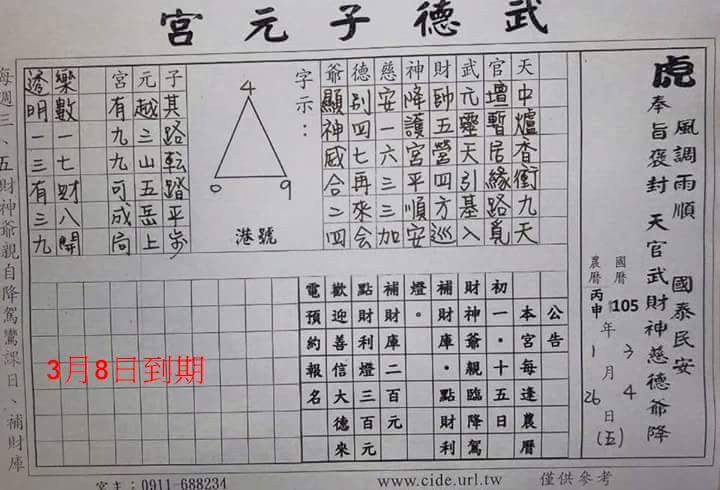 武德子元宮
虎
風調雨順 國泰民安
奉旨褒封 天官武財神慈德爺降
國曆 105年3月4日(五)
農曆 丙申 1月26日
天中爐香衝九天
官壇暫居緣路覓
武亢靈天引基入
財帥五營四方巡
神降護宮平順安
慈安一六三三加
德別四七再來會
爺顯神威合二四
字示:
4
0 9
港號
子其路転踏平步
元越三山五岳上
宮有九九可成局
樂數一七財八開
透明一三有三九
公告
本宮每逢農曆
初一·十五日
財神爺親臨降駕
補財庫·點財利
燈。
補財庫二百元
點財利燈三百元
歡迎善信大德來
電預約報名
3月8日到期
每週三、五財神爺親自降駕鸞課日、補財庫
宮主:0911-688234
www.cide.url.tw
僅供參考